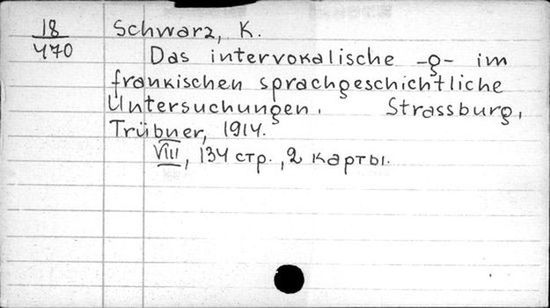 18
470
Schwarz, K.
Das intervokalische -g- im
frankischen sprachgeschichtliche
Untersuchungen. Strassburg,
Trübner, 1914.
VIII, 134 стр., 2 карты.